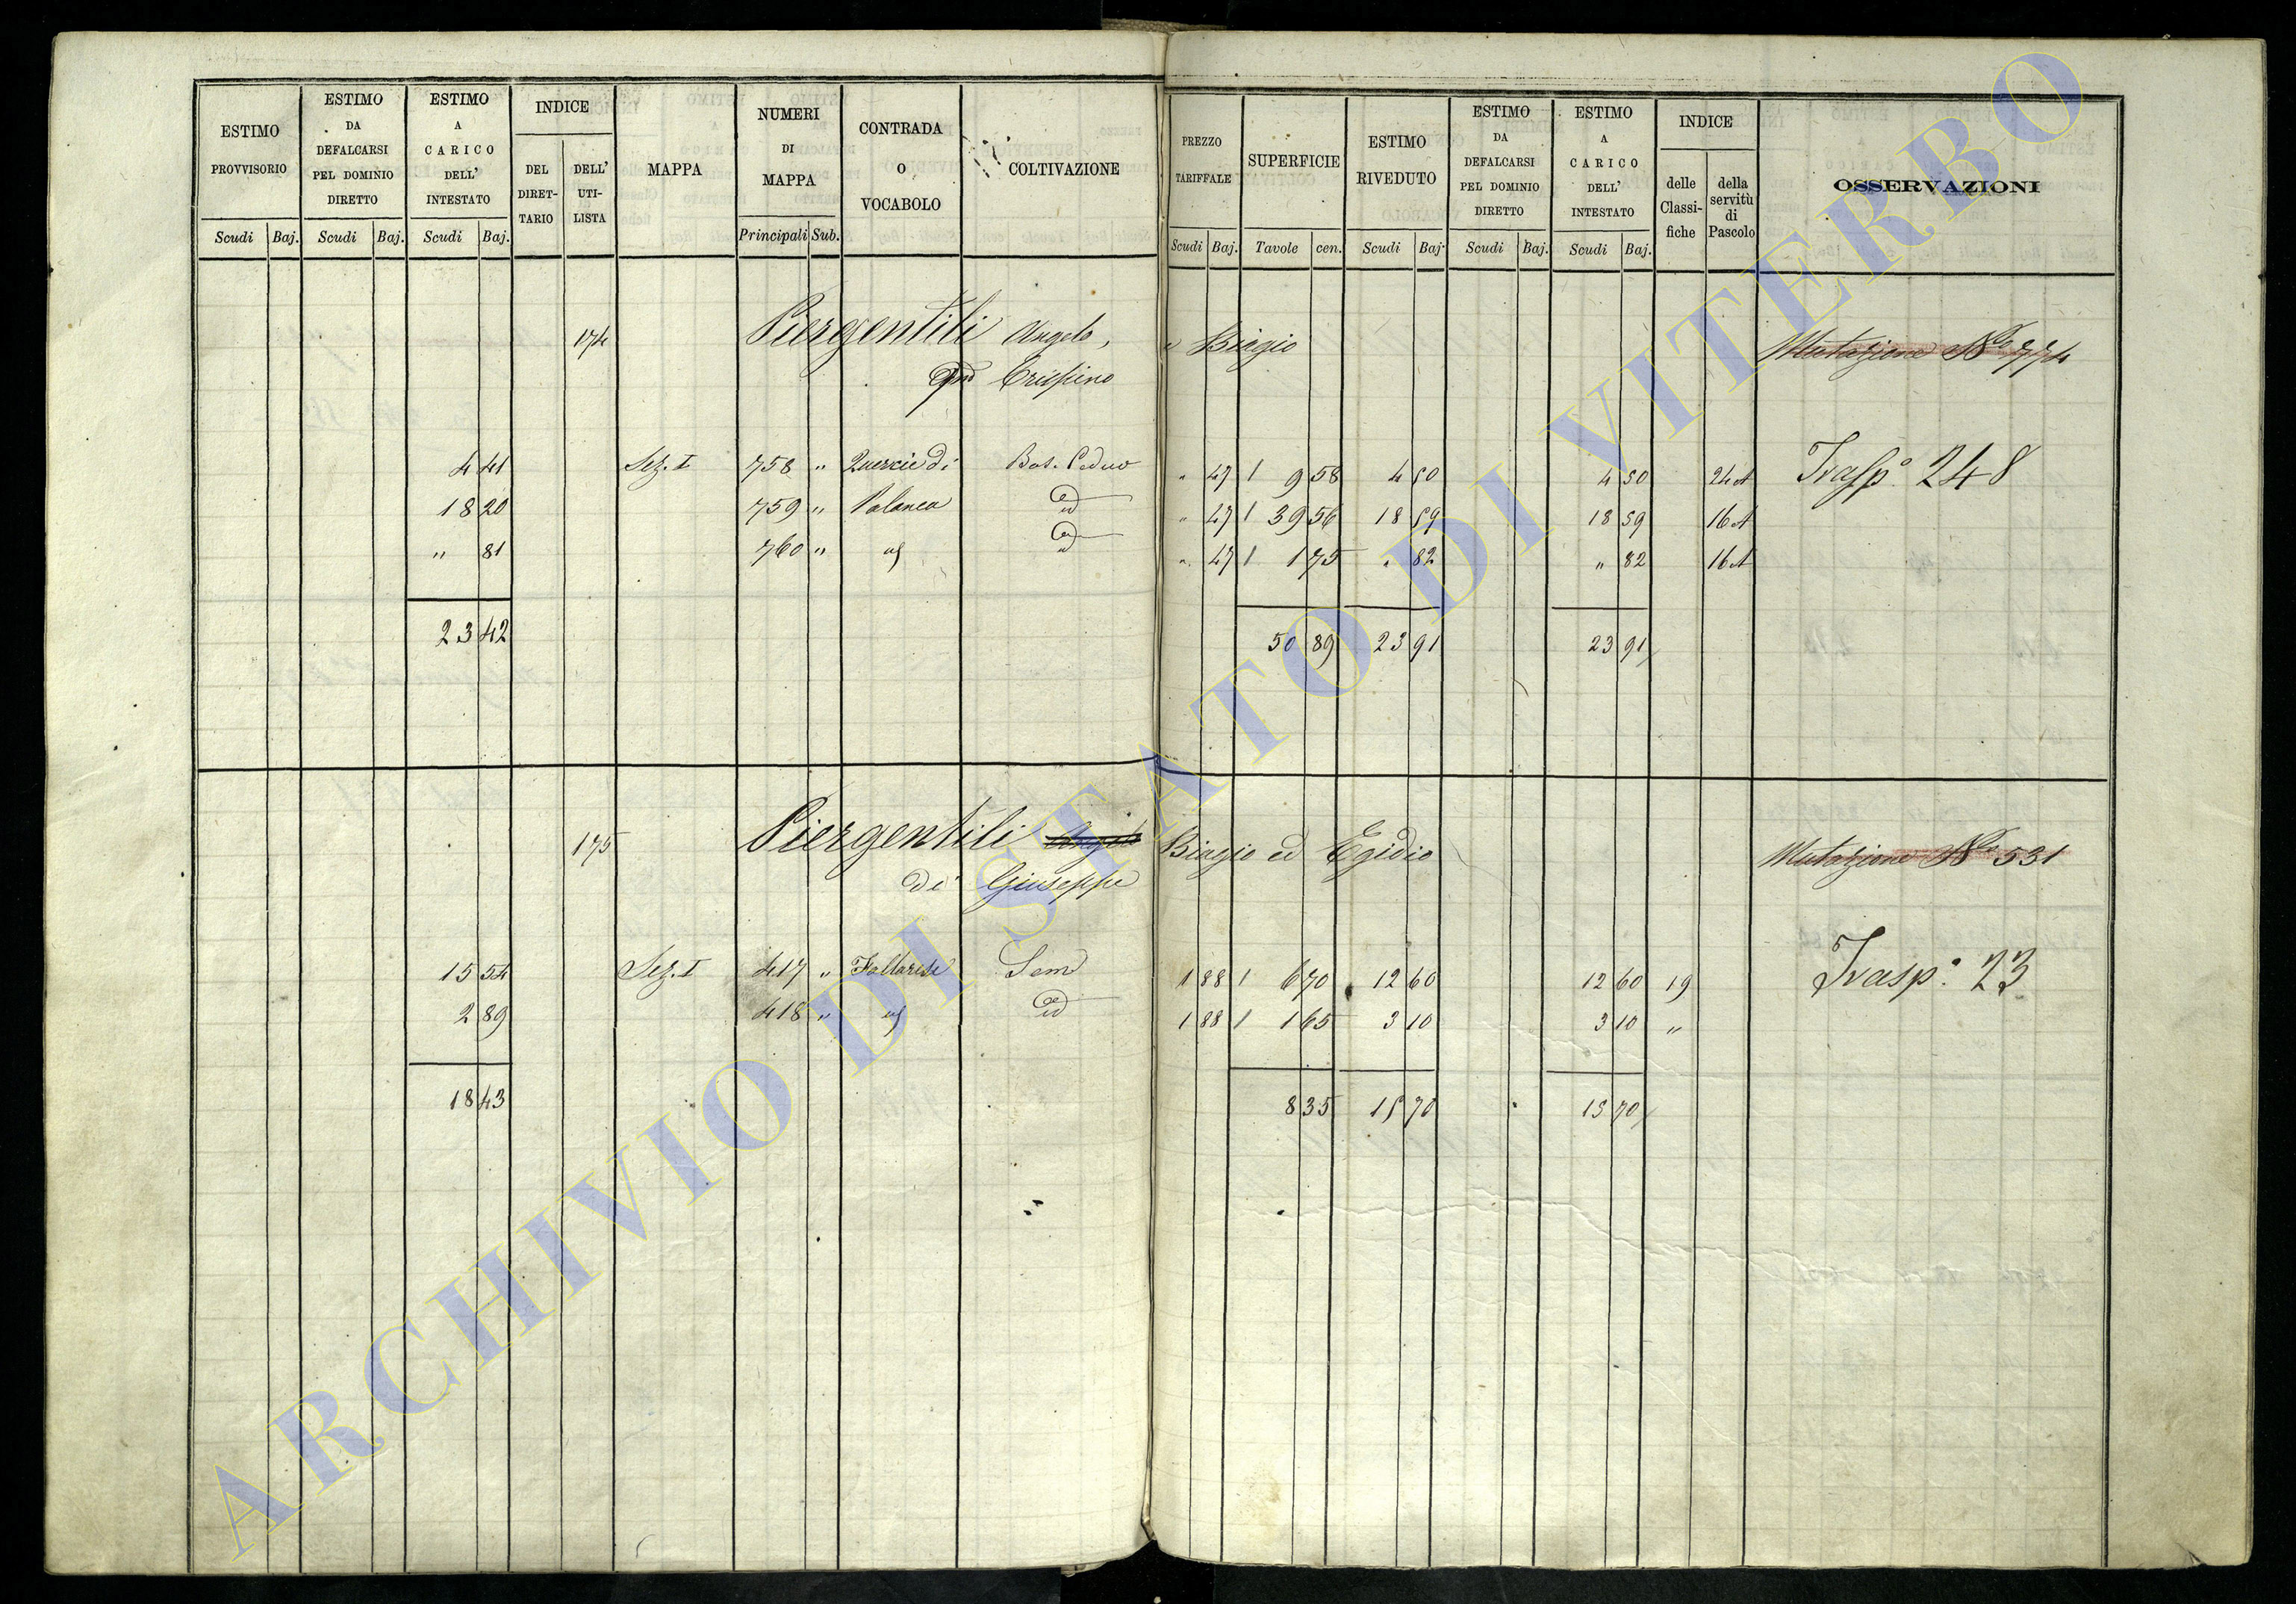 ESTIMO PROVVISORIO
ESTIMO DA DEFALCARSI PEL DOMINIO DIRETTO
ESTIMO A CARICO DELL' INTESTATO
INDICE
DEL DIRET-TARIO
DELL' UTI-LISTA
MAPPA
NUMERI DI MAPPA
CONTRADA O VOCABOLO
COLTIVAZIONE
PREZZO TARIFFALE
SUPERFICIE
ESTIMO RIVEDUTO
ESTIMO DA DEFALCARSI PEL DOMINIO DIRETTO
ESTIMO A CARICO DELL' INTESTATO
INDICE
delle Classi-fiche
della servitù di Pascolo
OSSERVAZIONI
Scudi Baj. Scudi Baj. Scudi Baj. Principali Sub. Scudi Baj. Tavole cen. Scudi Baj. Scudi Baj. Scudi Baj.
174 Piergentili Angelo, e Biagio Mutazione No 774
qm Crispino
4 41 Sez. I 758 " Quercie di Bos. Ceduo " 47 1 9 58 4 50 4 50 24A Trasp.o 248
18 20 759 " Palanca id " 47 1 39 56 18 59 18 59 16A
" 81 760 " id " 47 1 1 75 " 82 " 82 16A
23 42 50 89 23 91 23 91
175 Piergentili Angelo Biagio ed Egidio Mutazione No 531
di Giuseppe
15 54 Sez. I 417 " Sem 1 88 1 6 70 12 60 12 60 19 Trasp.o 23
2 89 418 " id 1 88 1 1 65 3 10 3 10 "
18 43 8 35 15 70 15 70
ARCHIVIO DI STATO DI VITERBO